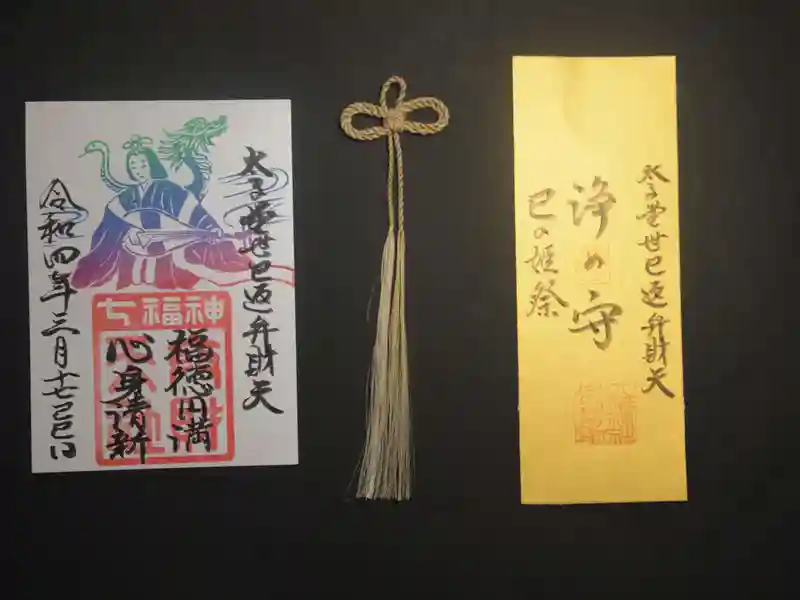 太子堂世巳返弁財天
七福神
福徳円満
心身清新
令和四年三月十七己巳日
太子堂世巳返弁財天
浄め守
巳の姫祭